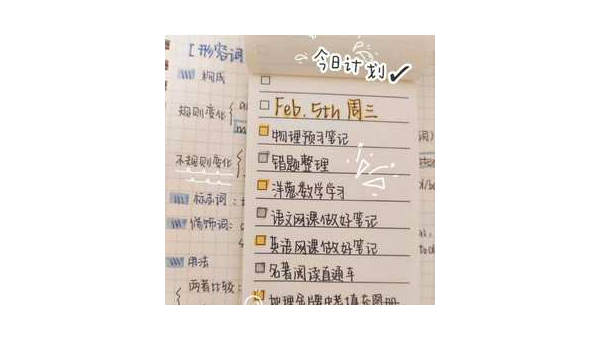 [形容词
今日计划✓
构成
规则变化
Feb. 5th 周三
物理预习笔记
不规则变化
错题整理
洋葱数学学习
标志词：
语文网课做好笔记
修饰词：
英语网课做好笔记
用法
名著阅读直通车
两者比较：
地理金牌中考填充图册